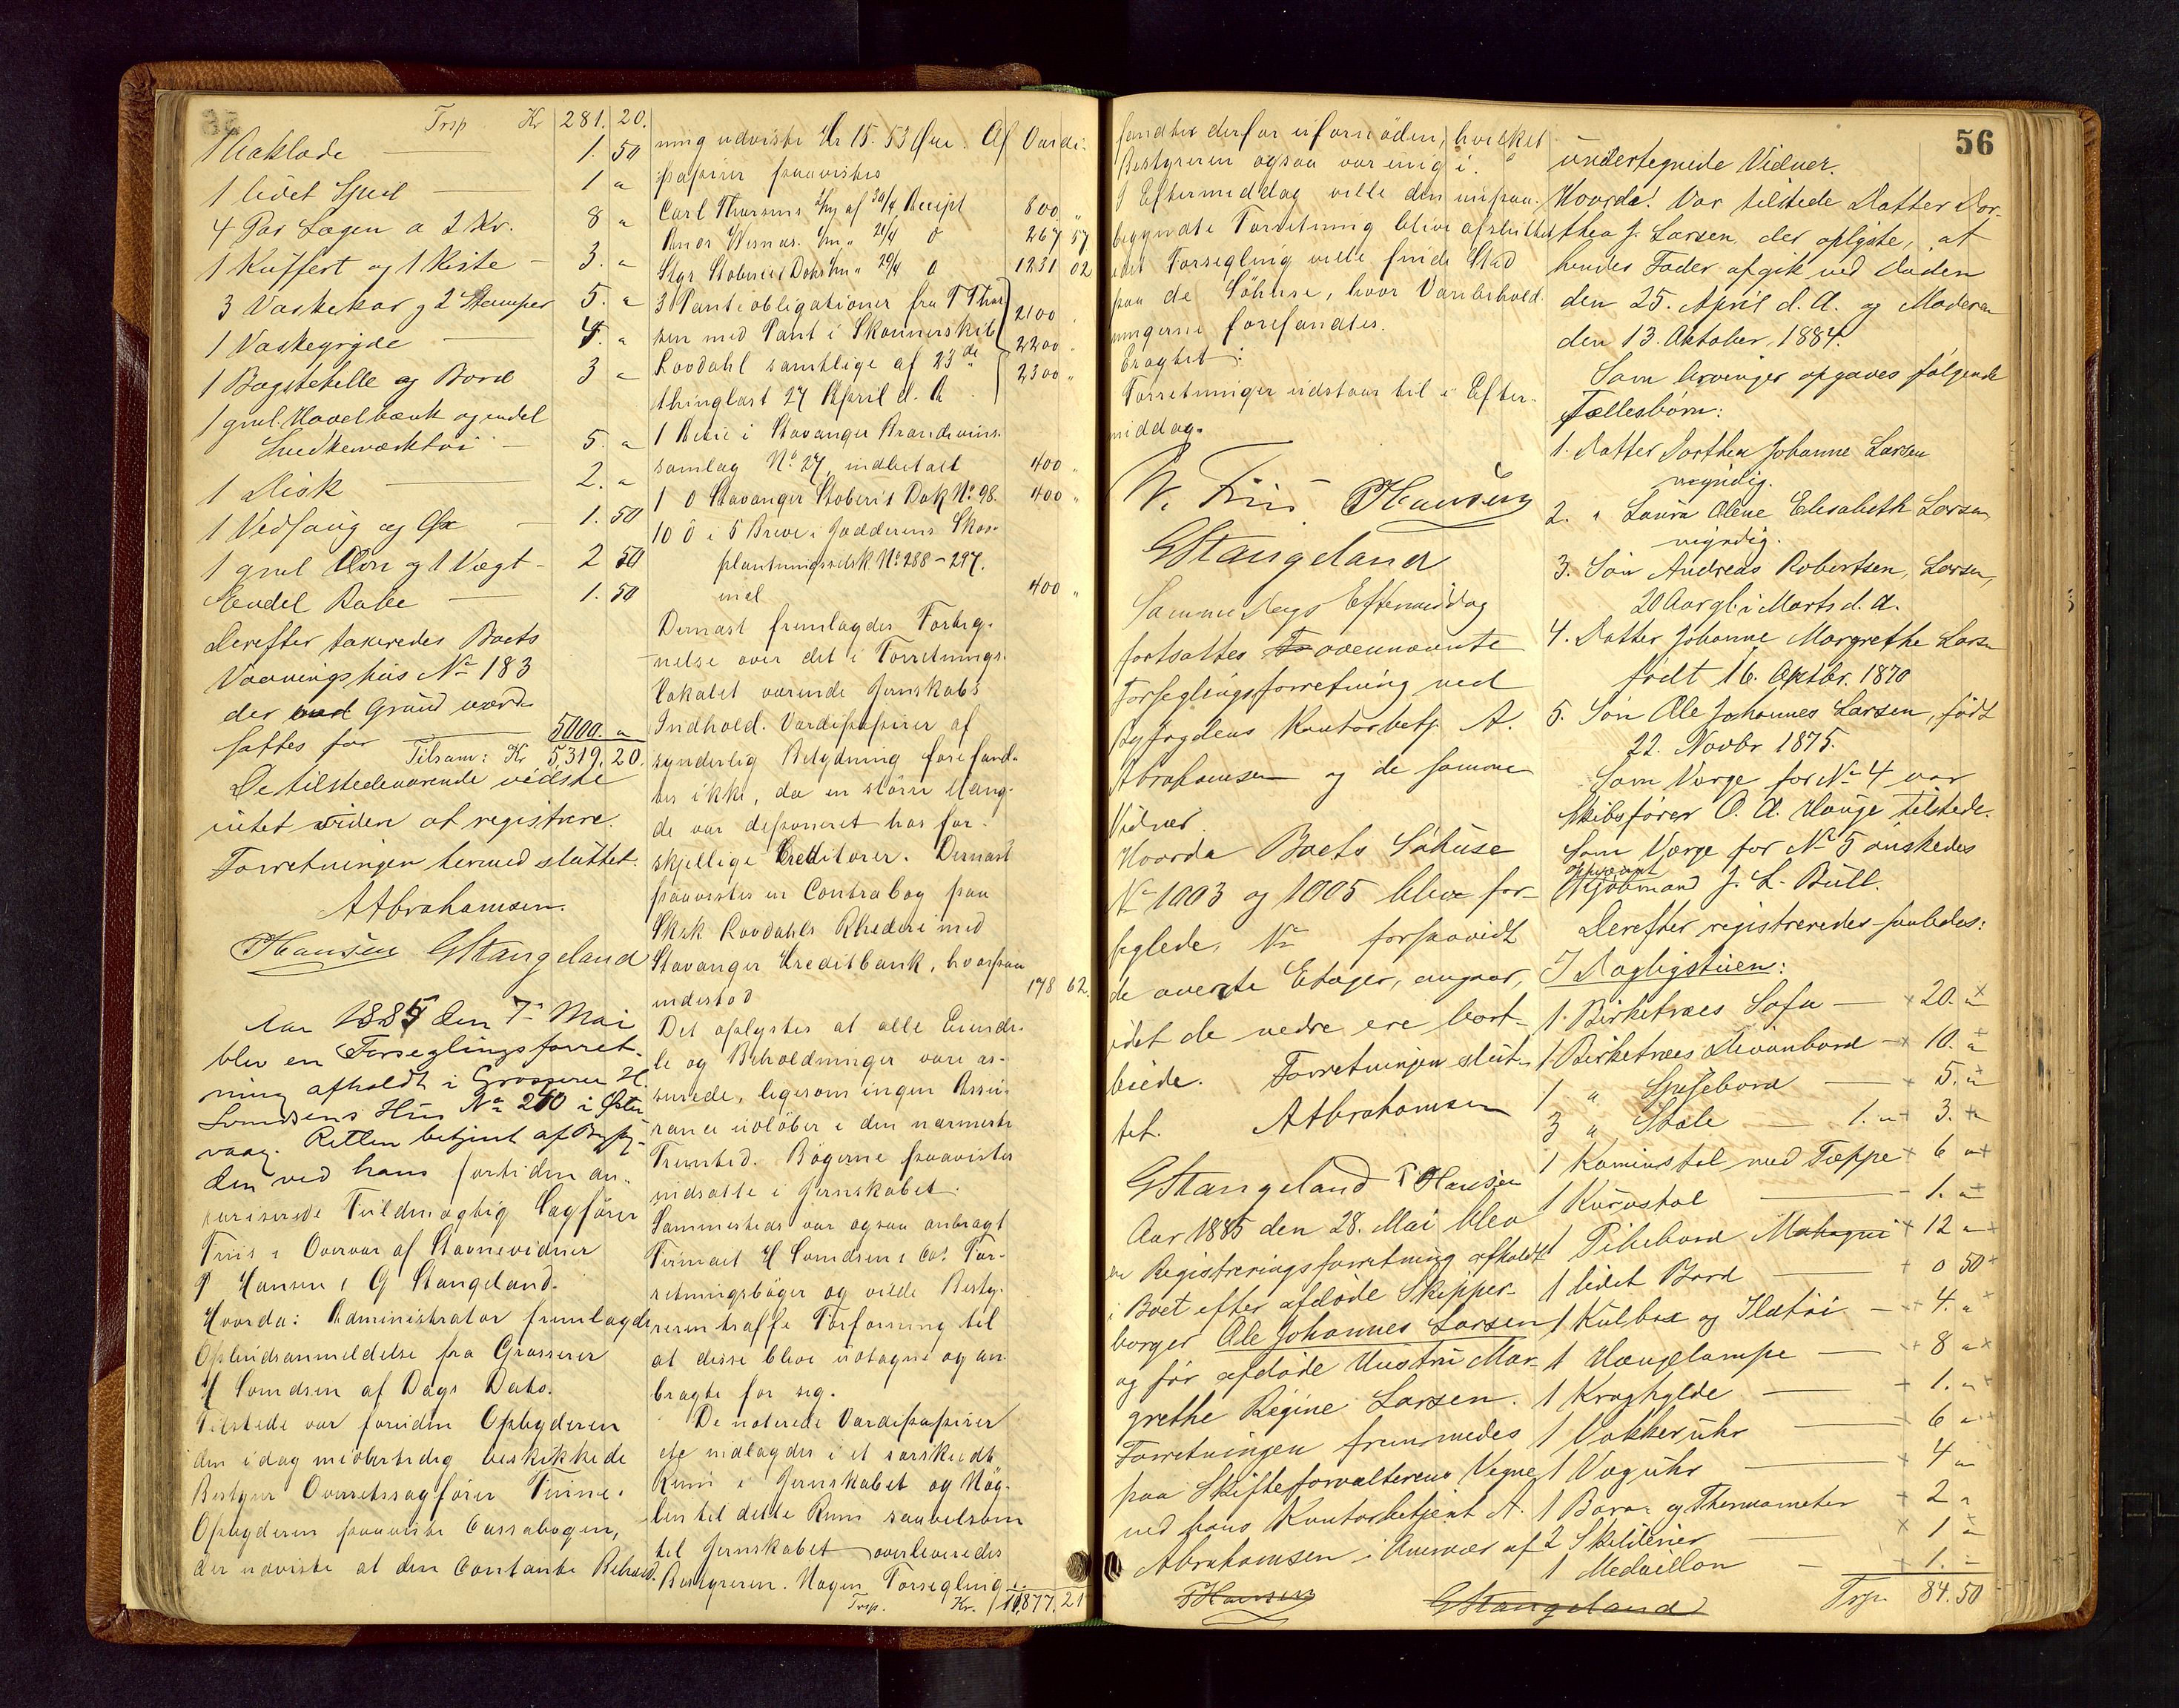 Trsp Kr 281. 20.
1 Kaklade — 1. 50
1 lidet Speil — 1 "
4 Par Lagen a 2 Kr. 8 "
1 Kuffert og 1 Kiste — 3. "
3 Vaskekar og 2 Stamper 5. "
1 Vaskegryde — 4. "
1 Bagstehelle og Bord 3 "
1 gml. Høvelbænk og endel
Snedkerværktøi — 5. "
1 Disk — 2. "
1 Vedsaug og Øx — 1. 50
1 gml Ovn og 1 Vægt — 2 50
Endel Rabe — 1. 50
Derefter taxeredes Boets
Vaaningshus No 183
der med Grund værd-
sattes for 5000. "
Tilsam: Kr 5,319. 20.
De tilstedeværende vidste
intet viden at registrere.
Forretningen hermed sluttet.
A Abrahamsen.
P Hansen G Stangeland
Aar 1885 den 7de Mai
blev en Forseglingsforret-
ning afholdt i Grosserer H.
Svendsens Hus No 250 i Øster
vaag. Retten betjent af Byfog-
den ved hans fortiden au-
toriserede Fuldmægtig Sagfører
Friis i Overvær af Stevnevidner
P Hansen & G Stangeland.
Hvorda: Administrator fremlagde
Opbudsanmeldelse fra Grosserer
H Svendsen af Dags Dato.
Tilstede var foruden Opbyderen
den idag midlertidig beskikkede
Bestyrer Overretssagfører Finne.
Opbyderen paaviste Cassabogen,
der udviste at den Contante Behold-
ning udviste Kr 15. 53 Øre. Af Værdi-
papirer paavistes
Carl Thorsens 2/m af 30/4 Accept 800 "
Anor Wernas. 4/m " 21/4 d 267 57
Stgr Støberi & Doks 4/m " 29/4 d 1231 02
3 Panteobligationer fra T Thor 2100 "
sen med Pant i Skonnerskib 2200 "
Rovdahl samtlige af 23de 2300 "
thinglæst 27 April d. A.
1 Actie i Stavanger Brændevins.
samlag No 27, indbetalt 400 "
1 d Stavanger Støberi & Dok No 98. 400 "
10 d i 5 Breve i Jædderens Skov-
plantningsselsk. No 288 – 297.
incl 400 "
Dernæst fremlagdes Forteg-
nelse over det i Forretnings-
lokalet værende Jernskabs
Indhold. Værdipapirer af
synderlig Betydning forefand-
tes ikke, da en større Mæng-
de var deponeret hos for-
skjellige Creditorer. Dernæst
paavistes en Contrabog paa
Sksk Rovdahls Rhederi med
Stavanger Kreditbank, hvorpaa
indestod 178 62.
Det oplystes at alle Eiende-
le og Beholdninger vare as-
surede, ligesom ingen Assu-
rance udløber i den nærmeste
Fremtid. Bøgerne paavistes
indsatte i Jernskabet.
Sammesteds var ogsaa anbragt
Firmaet H Svendsen & Co.s For-
retningsbøger og vilde Besty-
reren træffe Forføining til
at disse bleve udtagne og an
bragte for sig.
De noterede Værdipapirer
ete indlagdes i et særskildt
Rum i Jernskabet og Nøg-
len til dette Rum saavelsom
til Jernskabet overleveredes
Bestyreren. Nogen Forsegling
Trsp. Kr. 10877. 21
56
fandtes derfor ufornøden, hvilket
Bestyreren ogsaa var enig i.
I Eftermiddag ville den nu paa-
begyndte Forretning blive afsluttet
idet Forsegling ville finde Sted
paa de Søhuse, hvor Varebehold-
ningerne forefandtes.
Eragtet:
Forretningen udstaar til i Efter-
middag.
N. Friis P Hansen
G Stangeland
Samme Dags Eftermiddag
fortsattes ovennævnte
Forseglingsforretning ved
Byfogdens Kontorbetj. A.
Abrahamsen og de samme
Vidner.
Hvorda Boets Søhuse
No 1003 og 1005 bleve for-
seglede, No forsaavidt
de øverste Etager, angaar,
idet de nedre ere bort-
leiede. Forretningen slut-
tet. A Abrahamsen
G Stangeland P Hansen
Aar 1885 den 28. Mai blev
en Registreringsforretning afholdt
i Boet efter afdøde Skipper-
borger Ole Johannes Larsen
og før afdøde Hustru Mar-
grethe Regine Larsen.
Forretningen fremmedes
paa Skifteforvalterens Vegne
ved hans Kontorbetjent A.
Abrahamsen i Overvær af
P Hansen G Stangeland
undertegnede Vidner.
Hvorda! Var tilstede Datter Dor-
thea J. Larsen, der oplyste, at
hendes Fader afgik ved Døden
den 25. April d. A. og Moderen
den 13. Oktober, 1884.
Som Arvinger opgaves følgende
Fællesbørn:
1. Datter Dorthea Johanne Larsen
myndig.
2. " Laura Olene Elisabeth Larsen
myndig.
3. Søn Andreas Robertsen, Larsen,
20 Aar gl. i Marts d. A.
4. Datter Johanne Margrethe Larsen
født 16. Oktbr. 1870
5. Søn Ole Johannes Larsen, født
22. Novbr. 1875.
Som Værge for No 4 var
Skibsfører O. A. Hauge tilstede.
Som Værge for No 5 ønskedes
opnævnt
Kjøbmand J. L. Bull.
Derefter registreredes saaledes:
I Dagligstuen:
1 Birketræes Sofa — 20. "
1 Birketræes Divanbord — 10. "
1 " Spisebord — 5. "
3 " Stole — 1. " 3. "
1 Kaminstol med Tæppe 6 "
1 Kurvstol — 1. "
1 Pibebord Mahogni 12 "
1 lidet Bord — 0 50
1 Kulbox og Ildtøi — 4. "
1 Hængelampe — 8 "
1 Kroghylde — 1. "
1 Vækkeruhr — 6 "
1 Væguhr — 4 "
1 Baro- og Thermometer 2 "
2 Skilderier — 1 "
1 Medaillon — 1. "
Trsp. 84. 50